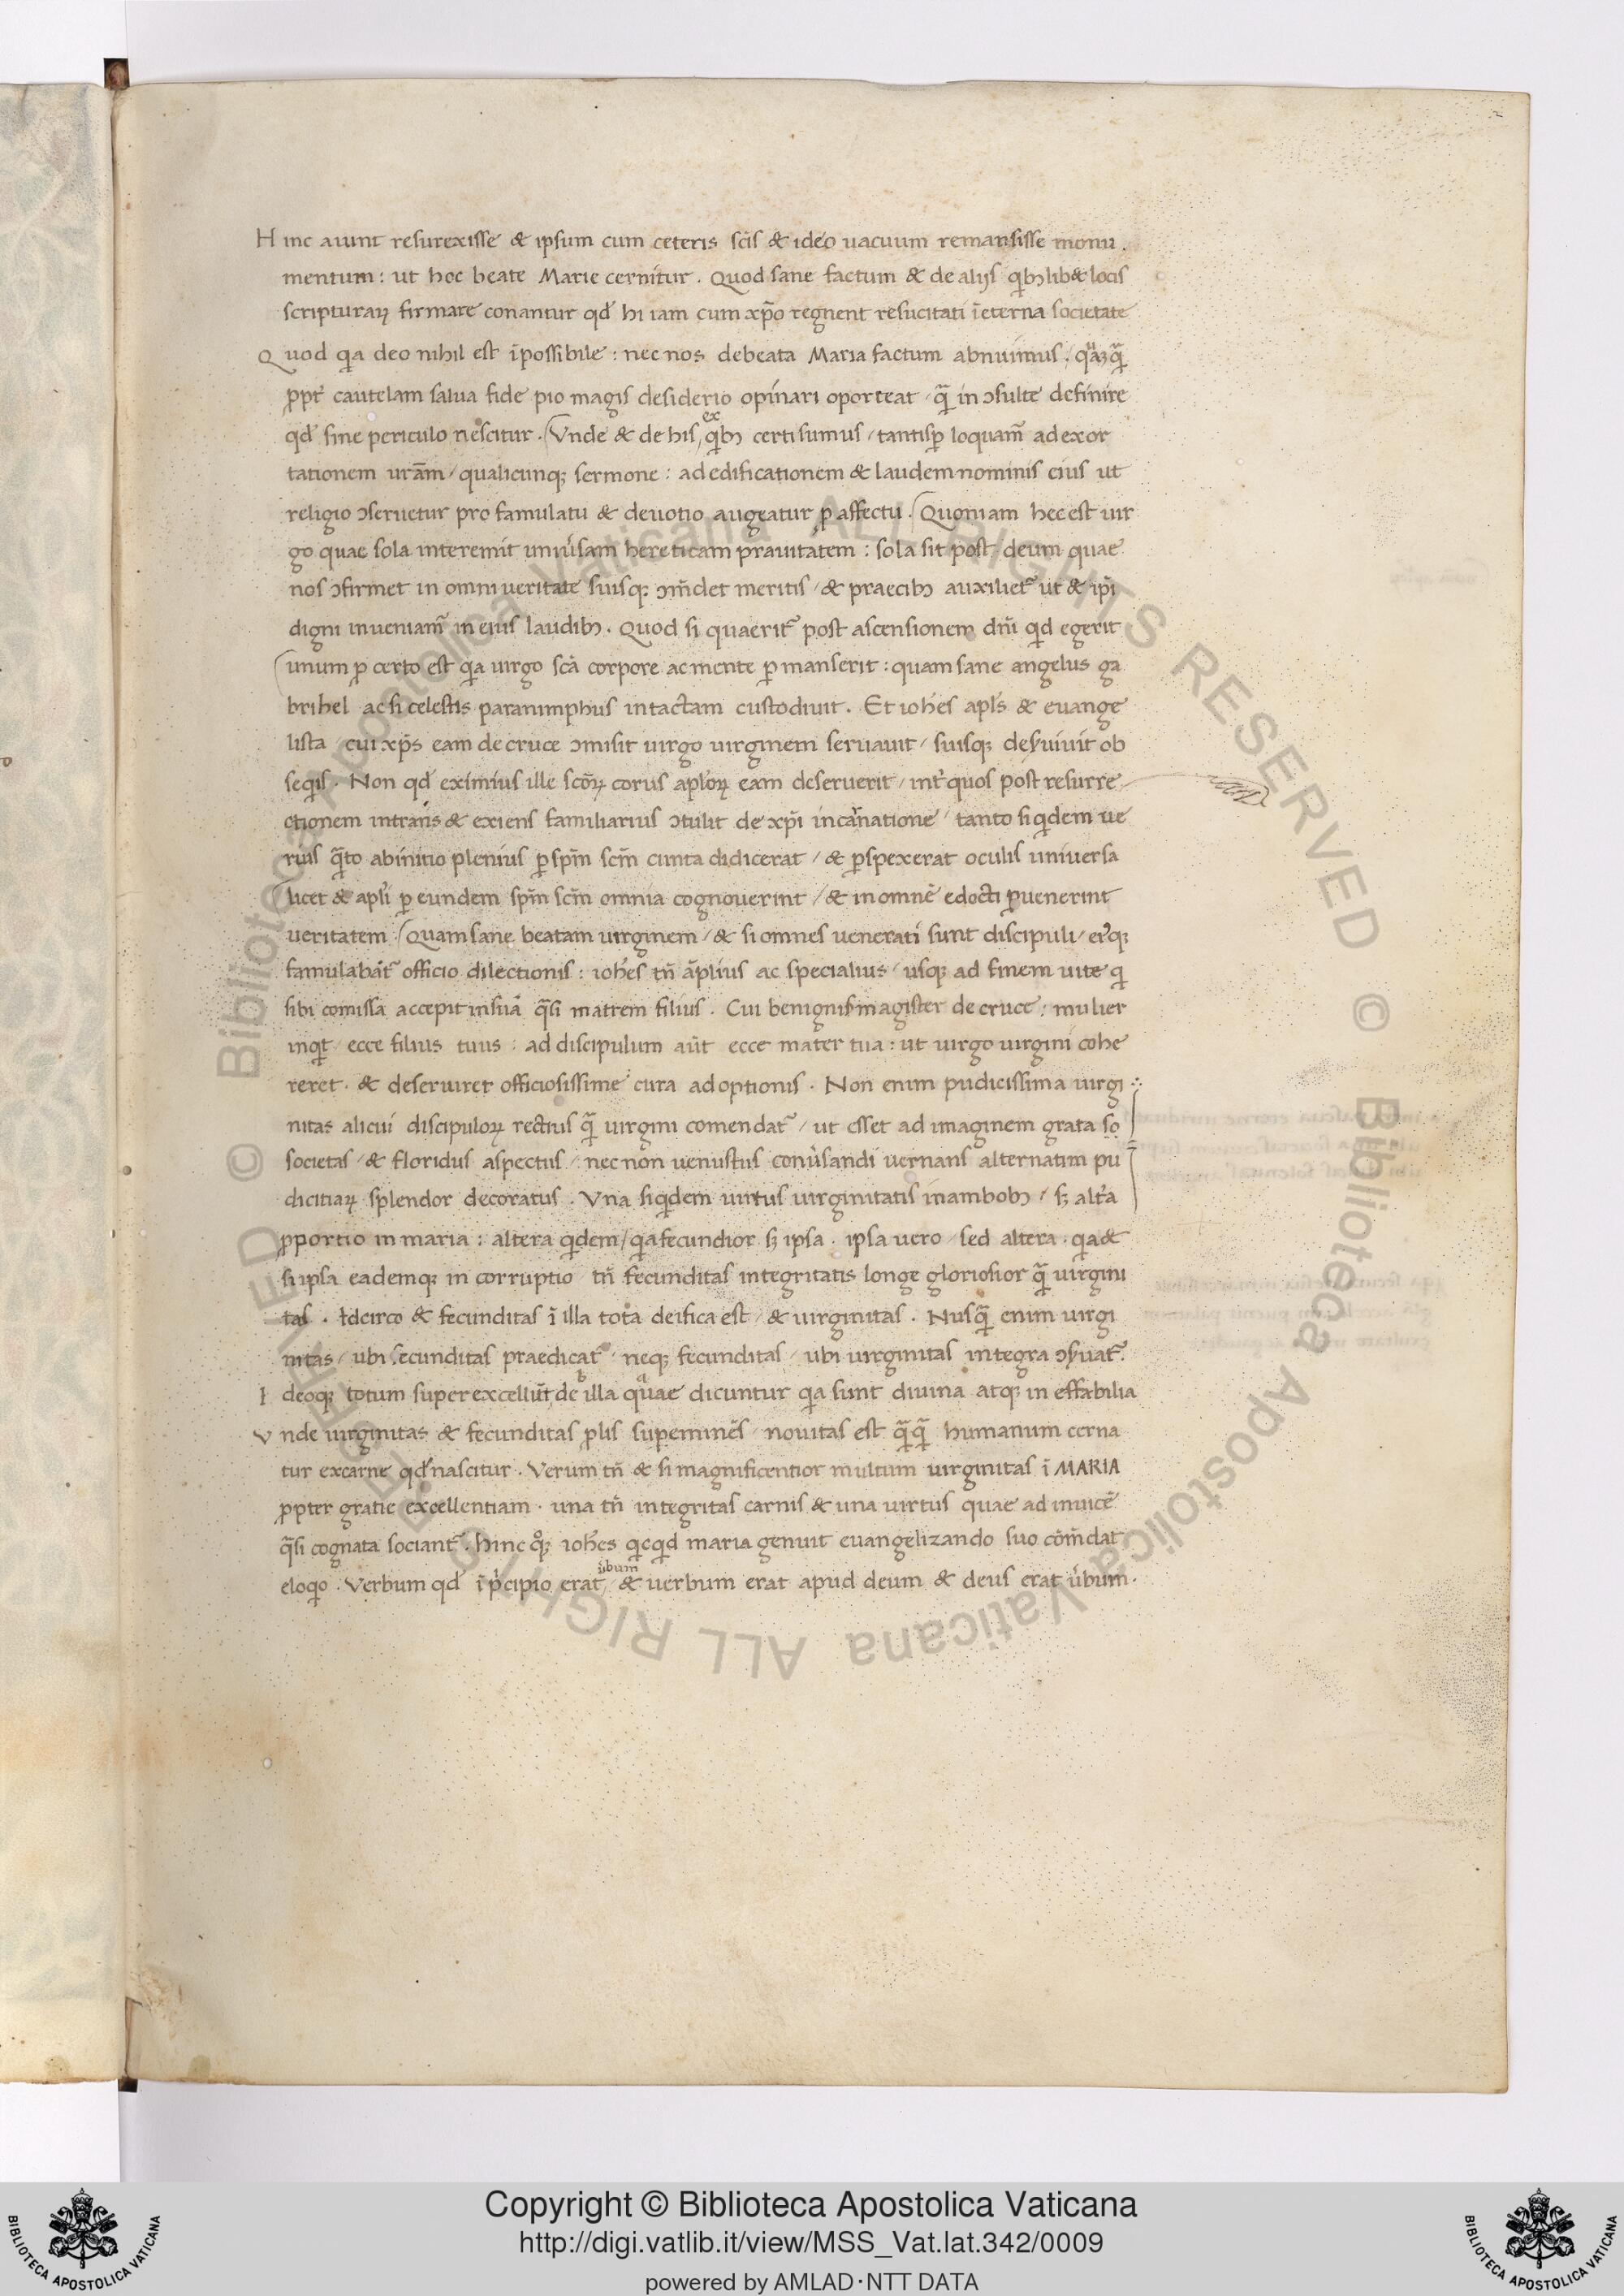 Hinc aiunt resurexisse & ipsum cum ceteris sc̄is & ideo uacuum remansisse monu.
mentum: ut hoc beate Marie cernitur. Quod sane factum & de alijs qͥbꝫlib& locis
scripturaꝝ firmare conantur qd̛ hi iam cum xp̄o regnent resucitati ī eterna societate
Quod qͥa deo nihil est īpossibile: nec nos de beata Maria factum abnuimus,
ꝓpt̛ cautelam salua fide pio magis desiderio opinari oporteat / qͣ̄ in ↄsulte definire
qd̛ sine periculo nescitur. Vnde & de his, ex qͥbꝫ certi sumus / tantisꝑ loquam̄ ad exor
tationem ur̄am / qualicunqꝫ sermone: ad edificationem & laudem nominis eius ut
religio ↄseruetur pro famulatu & deuotio augeatur ꝑ affectu. Quoniam hec est uir
go quae sola interemit uniưsam hereticam prauitatem: sola sit post deum quae
nos ↄfirmet in omni ueritate suisqꝫ ↄm̄det meritis / & praecibꝫ auxiliet᷑ ut & ip̄i
digni inueniam᷑ in eius laudibꝫ. Quod si quaerit᷑ post ascensionem dn̄i qͥd egerit
unum ꝓ certo est qͥa uirgo sc̄a corpore ac mente ꝑmanserit: quam sane angelus ga
brihel ac si celestis paranimphus intactam custodiuit. Et ioh̄es apl̄s & euange
lista / cui xp̄s eam de cruce ↄmisit uirgo uirginem seruauit / suisqꝫ des̛uiuit ob
seqͥis. Non qd̛ eximius ille scōꝝ corus apl̄oꝝ eam deseruerit / int̛ quos post resurre
ctionem intrans & exiens familiarius ↄtulit de xp̄i incarnatione / tanto siqͥdem ue
rius qͣ̄to ab initio plenius ꝑ sp̄m sc̄m cunta didicerat / & ꝑspexerat oculis universa
licet & apl̄i ꝑ eundem sp̄m sc̄m omnia cognouerint / & in omnē edocti ꝑuenerint
ueritatem. Quam sane beatam uirginem / & si omnes uenerati sunt discipuli / eiqꝫ
famulabāt᷑ officio dilectionis: ioh̄es tn̄ āplius ac specialius / usqꝫ ad finem uite qͥ
sibi comissa accepit in suā qͣ̄si matrem filius. Cui benignus magister de cruce: mulier
inqͥt ecce filius tuus: ad discipulum aūt ecce mater tua: ut uirgo uirgini cohe
reret. & deseruiret officiosissime cura adoptionis. Non enim pudicissima uirgi
nitas alicui discipuloꝝ rectius qͣ̄ uirgini comendat᷑ / ut esset ad imaginem grata so
societas / & floridus aspectus / nec non uenustus conưsandi uernans alternatim pu
dicitiaꝝ splendor decoratus. Vna siqͥdem uirtus uirginitatis in ambobꝫ / sꝫ alt̛a
ꝓportio in maria: altera qͥdem / qͥa fecundior sꝫ ipsa. ipsa uero / sed altera. qͥa &
si ipsa eademqꝫ incorruptio tn̄ fecunditas integritatis longe gloriosior qͣ̄ uirgini
tas. Idcirco & fecunditas ī illa tota deifica est / & uirginitas. Nusqͣ̄ enim uirgi
nitas / ubi fecunditas praedicat᷑ neqꝫ fecunditas / ubi uirginitas integra ↄs̛uat᷑.
Ideoqꝫ totum super excellit de illa quae dicuntur qͥa sunt diuina atqꝫ in effabilia
Vnde uirginitas & fecunditas ꝓlis suꝑeminēs / nouitas est qͣ̄qͣ̄ humanum cerna
tur ex carne qd̛ nascitur. Verum tn̄ & si magnificentior multum uirginitas ī MARIA
ꝓpter gratie excellentiam. una tn̄ integritas carnis & una uirtus quae ad inuicē
qͣ̄si cognata sociant᷑. hinc qͦqꝫ ioh̄es qͥcqͥd maria genuit euangelizando suo cōm̄dat
eloqͥo. Verbum qd̛ ī pͥncipio erat ưbum / & uerbum erat apud deum & deus erat ưbum.
© Biblioteca Apostolica Vaticana ALL RIGHTS RESERVED © Biblioteca Apostolica Vaticana ALL RIGHTS RESERVED
Copyright © Biblioteca Apostolica Vaticana
http://digi.vatlib.it/view/MSS_Vat.lat.342/0009
powered by AMLAD·NTT DATA
BIBLIOTECA APOSTOLICA VATICANA
BIBLIOTECA APOSTOLICA VATICANA